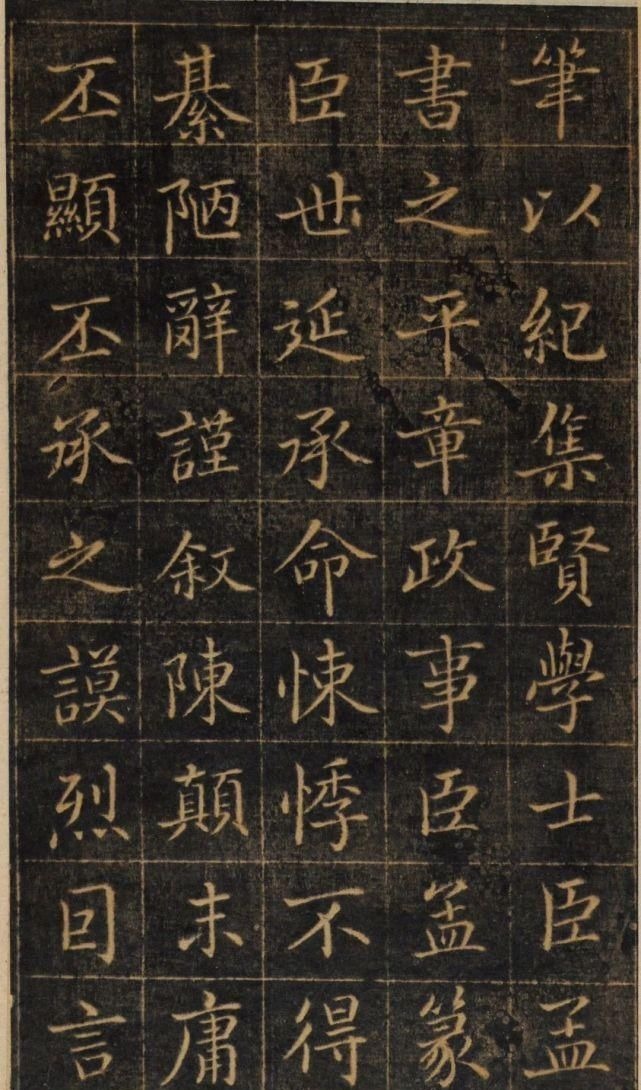 筆以紀集賢學士臣孟
書之平章政事臣孟篆
臣世延承命悚悸不得
綦陋辭謹叙陳顛末庸
丕顯丕承之謨烈囙言